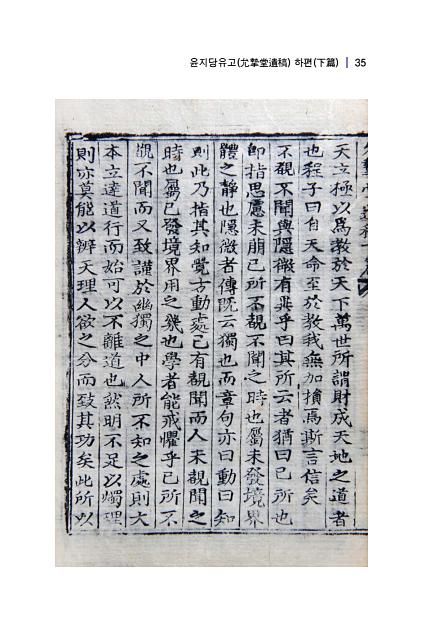 윤지당유고(允摯堂遺稿) 하편(下篇) | 35
天立極以爲敎於天下萬世所謂財成天地之道者
也程子曰自天命至於敎我無加損焉斯言信矣
不覩不聞與隱微有異乎曰其所云者猶曰已所也
卽指思慮未萌已所不覩不聞之時也屬未發境界
體之靜也隱微者傳旣云獨也而章句亦曰動曰知
則此乃指其知覺方動處已有覩聞而人未覩聞之
時也屬已發境界用之幾也學者能戒懼乎已所不
覩不聞而又致謹於幽獨之中人所不知之處則大
本立達道行而始可以不離道也然明不足以燭理
則亦莫能以辨天理人欲之分而致其功矣此所以